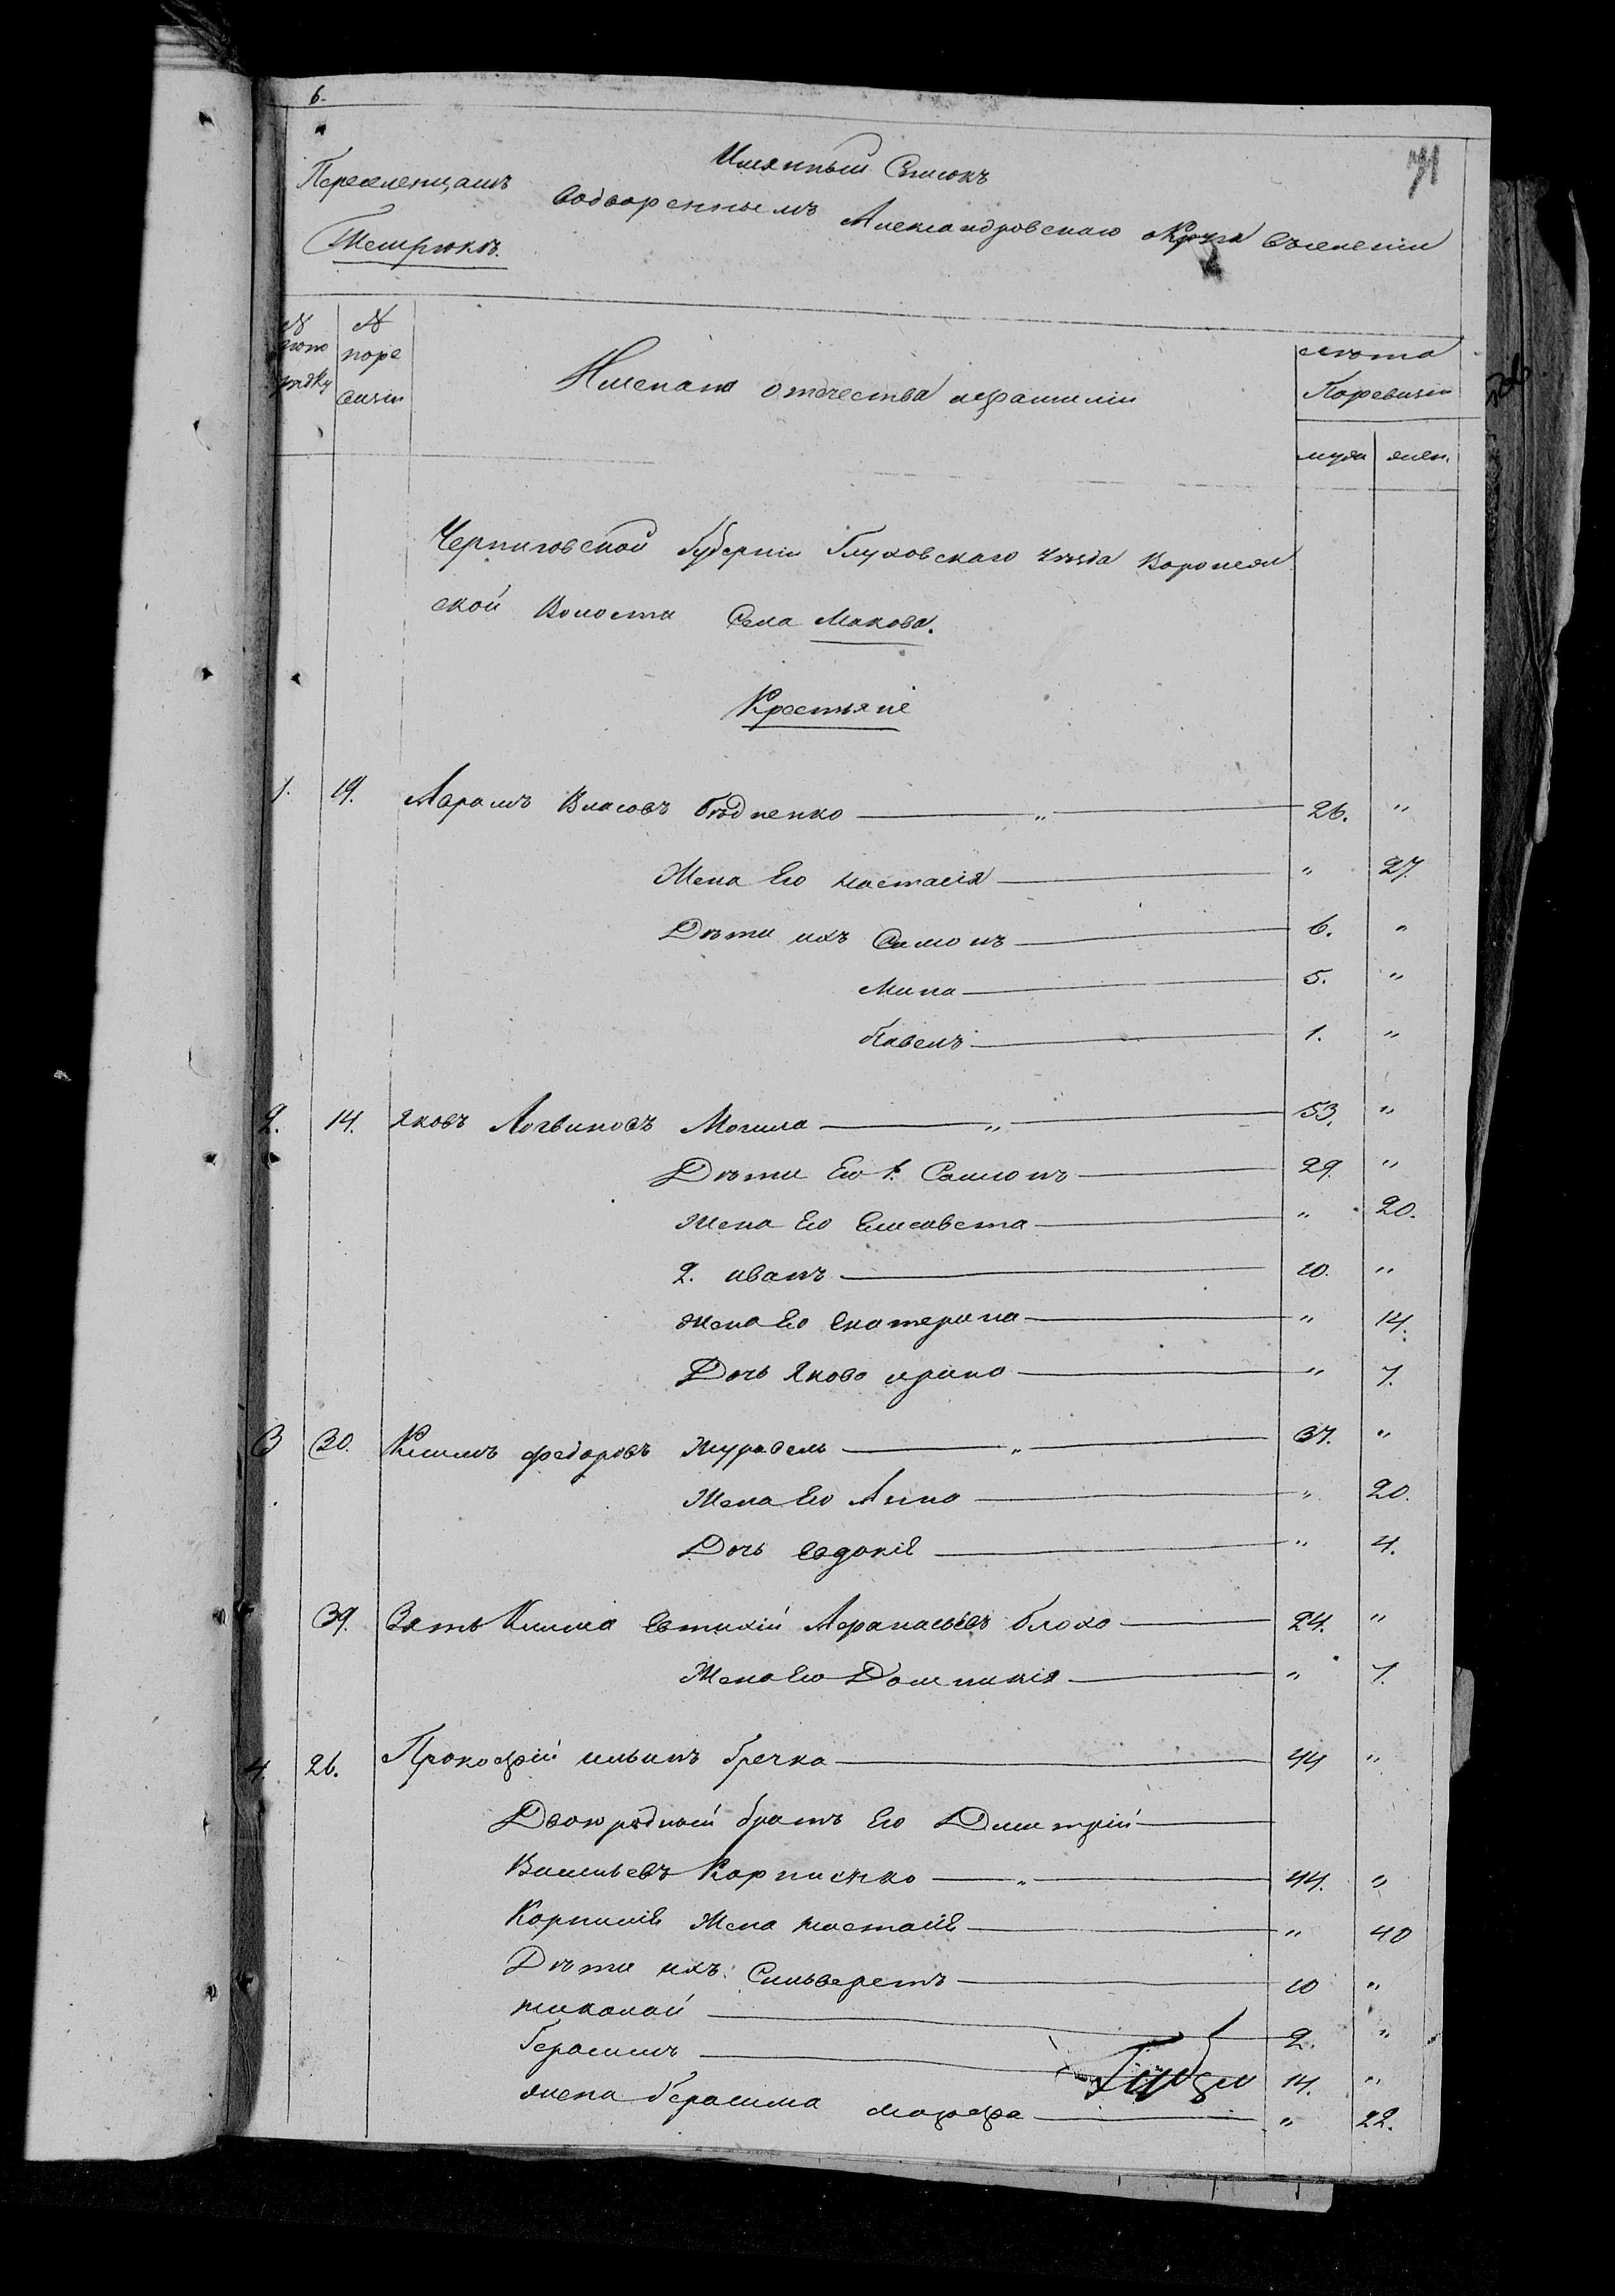 6.
Имянный Списокъ
Переселенцамъ водвореннымъ Александровскаго округа въселеніи
Темрюкъ.
№ № лѣта
попо поре
рядку визіи Именаю отечества ифамиліи Поревизіи
муж жен.
Черниговской Губерніи Глуховскаго уѣзда Воронеж
ской Волости Села Макова.
Крестьяне
1. 19. Аврамъ Власовъ Бѣдненко „ 26. „
Жена Его Настасія „ 27.
Дѣти ихъ Симонъ 6. „
Мина 5. „
Павелъ 1. „
2. 14. Яковъ Логвиновъ Могила „ 53. „
Дѣти Его 1. Самсонъ 29. „
Жена Его Елисавета „ 20.
2. иванъ 10. „
Жена Его Екатерина „ 14.
Дочь Якова ирина „ 7.
3 30. Климъ федоровъ Журавель „ 37. „
Жена Его Анна „ 20.
Дочь Евдокія „ 4.
39. Зять Клима Евтихій Афанасьевъ блоха 24. „
Жена Его Домникія „ 7.
4. 26. Прокофій ильинъ Гречка 44 „
Двоюродный братъ Его Дмитрій
Васильевъ Корніенко „ 44. „
Корнилія Жена Настасія „ 40
Дѣти ихъ: Сильверстъ 10 „
николай 2. „
Герасимъ 14. „
жена Герасима марфа „ 22.